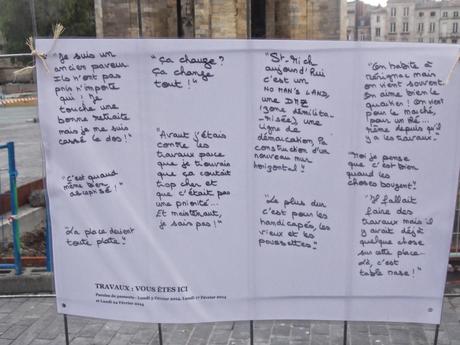 "Je suis un
ancien paveur.
Ils n'ont pas
pris n'importe
qui ! Je
touche une
bonne retraite
mais je me suis
cassé le dos !"
"C'est quand
même bien
" !"
"La place devient
toute plate."
"Ça change ?
Ça change
tout !"
"Avant j'étais
contre les
travaux parce
que je trouvais
que ça coûtait
trop cher et
que c'était pas
une priorité...
Et maintenant,
je sais pas !"
"St-Mich
aujourd'hui
c'est un
NO MAN'S LAND,
une DMZ
(zone démilita-
risée), une
ligne de
démarcation, la
construction d'un
nouveau mur
horizontal."
"Le plus dur
c'est pour les
handicapés, les
vieux et les
poussettes."
"On habite à
Mérignac mais
on vient souvent.
On aime bien le
quartier ! On vient
pour le marché,
pour un thé...
même depuis qu'il
y a les travaux."
"Moi je pense
que c'est bien
quand les
choses bougent."
"Il fallait
faire des
travaux mais il
y avait déjà
quelque chose
sur cette place.
Là, c'est
table rase !"
TRAVAUX : VOUS ÊTES ICI
Paroles de passants - Lundi 3 Février 2014, Lundi 17 Février 2014
et Lundi 24 Février 2014